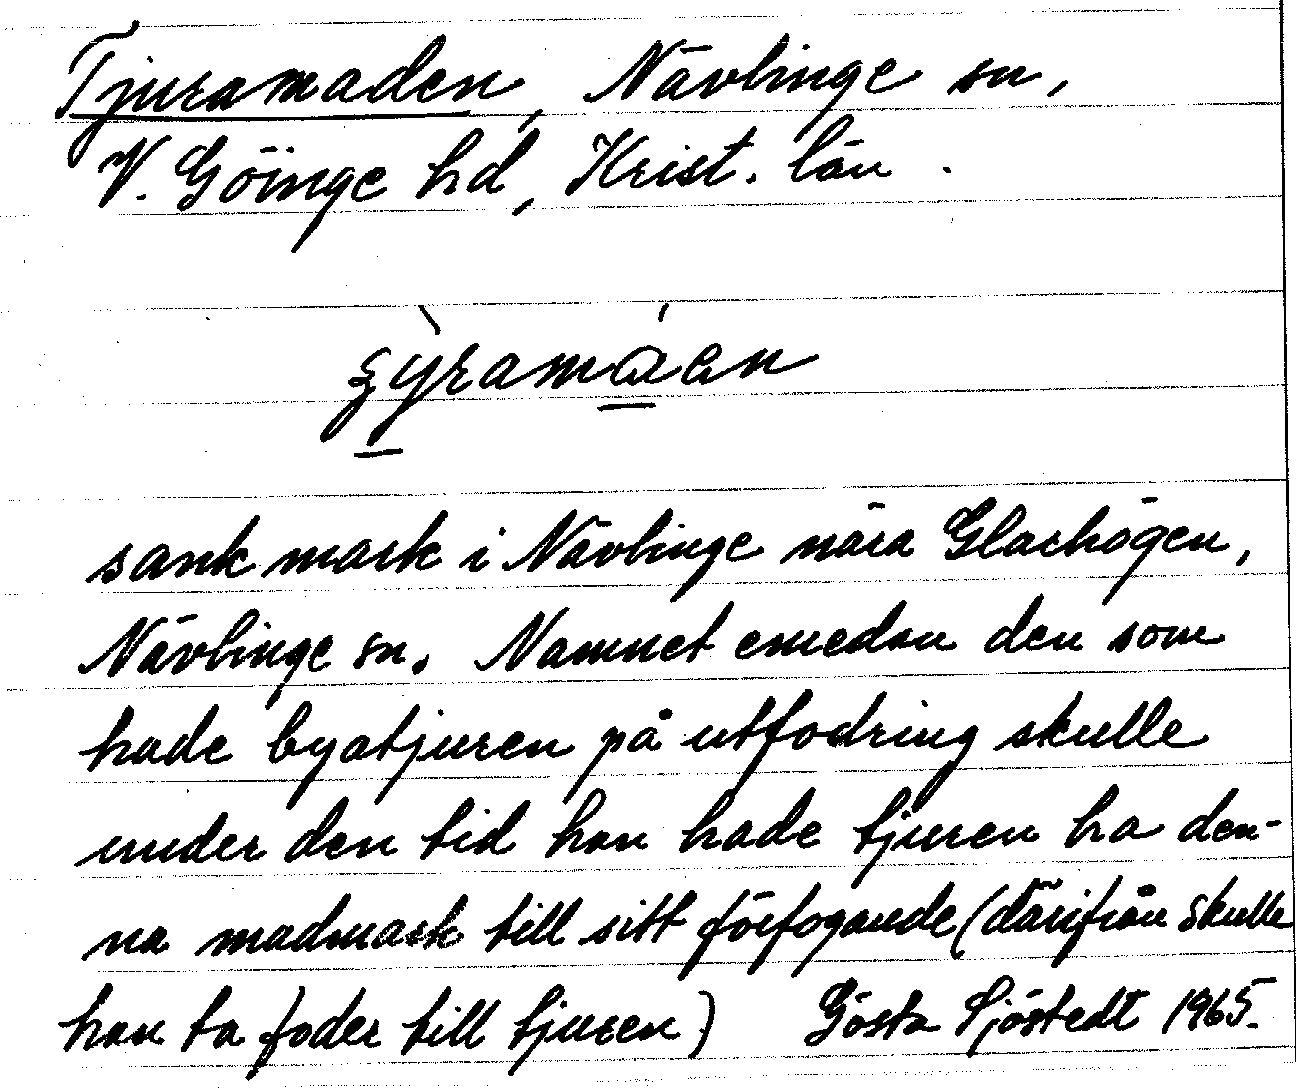 Tjuramaden, Nävlinge sn,
V. Göinge hd, Krist. län.
sank mark i Nävlinge nära Glarhögen,
Nävlinge sn. Namnet emedan den som
hade byatjuren på utfodring skulle
under den tid han hade tjuren ha den-
na madmark till sitt förfogande (därifrån skulle
han ta foder till tjuren) Gösta Sjöstedt 1965.